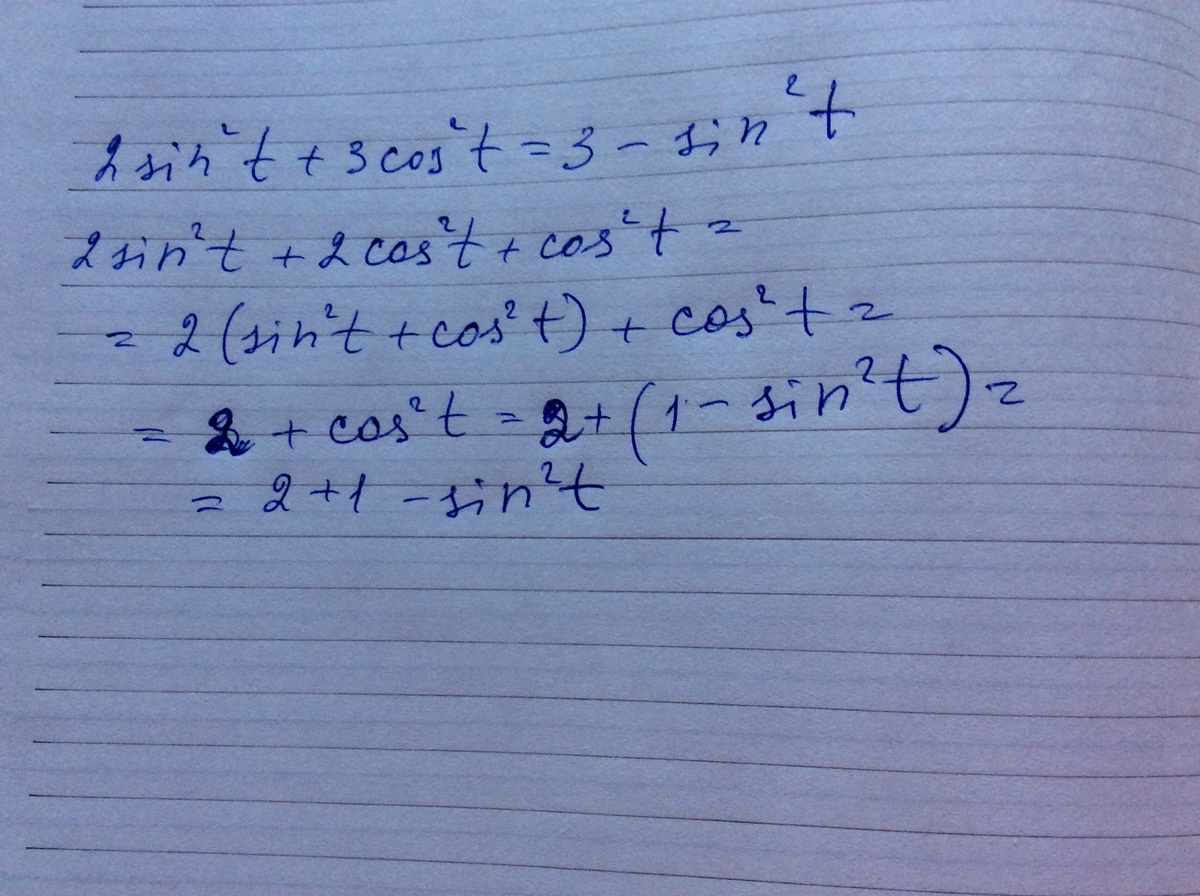 2 sin²t + 3 cos²t = 3 - sin²t
2 sin²t + 2 cos²t + cos²t =
= 2 (sin²t + cos²t) + cos²t =
= 2 + cos²t = 2 + (1 - sin²t) =
= 2 + 1 - sin²t